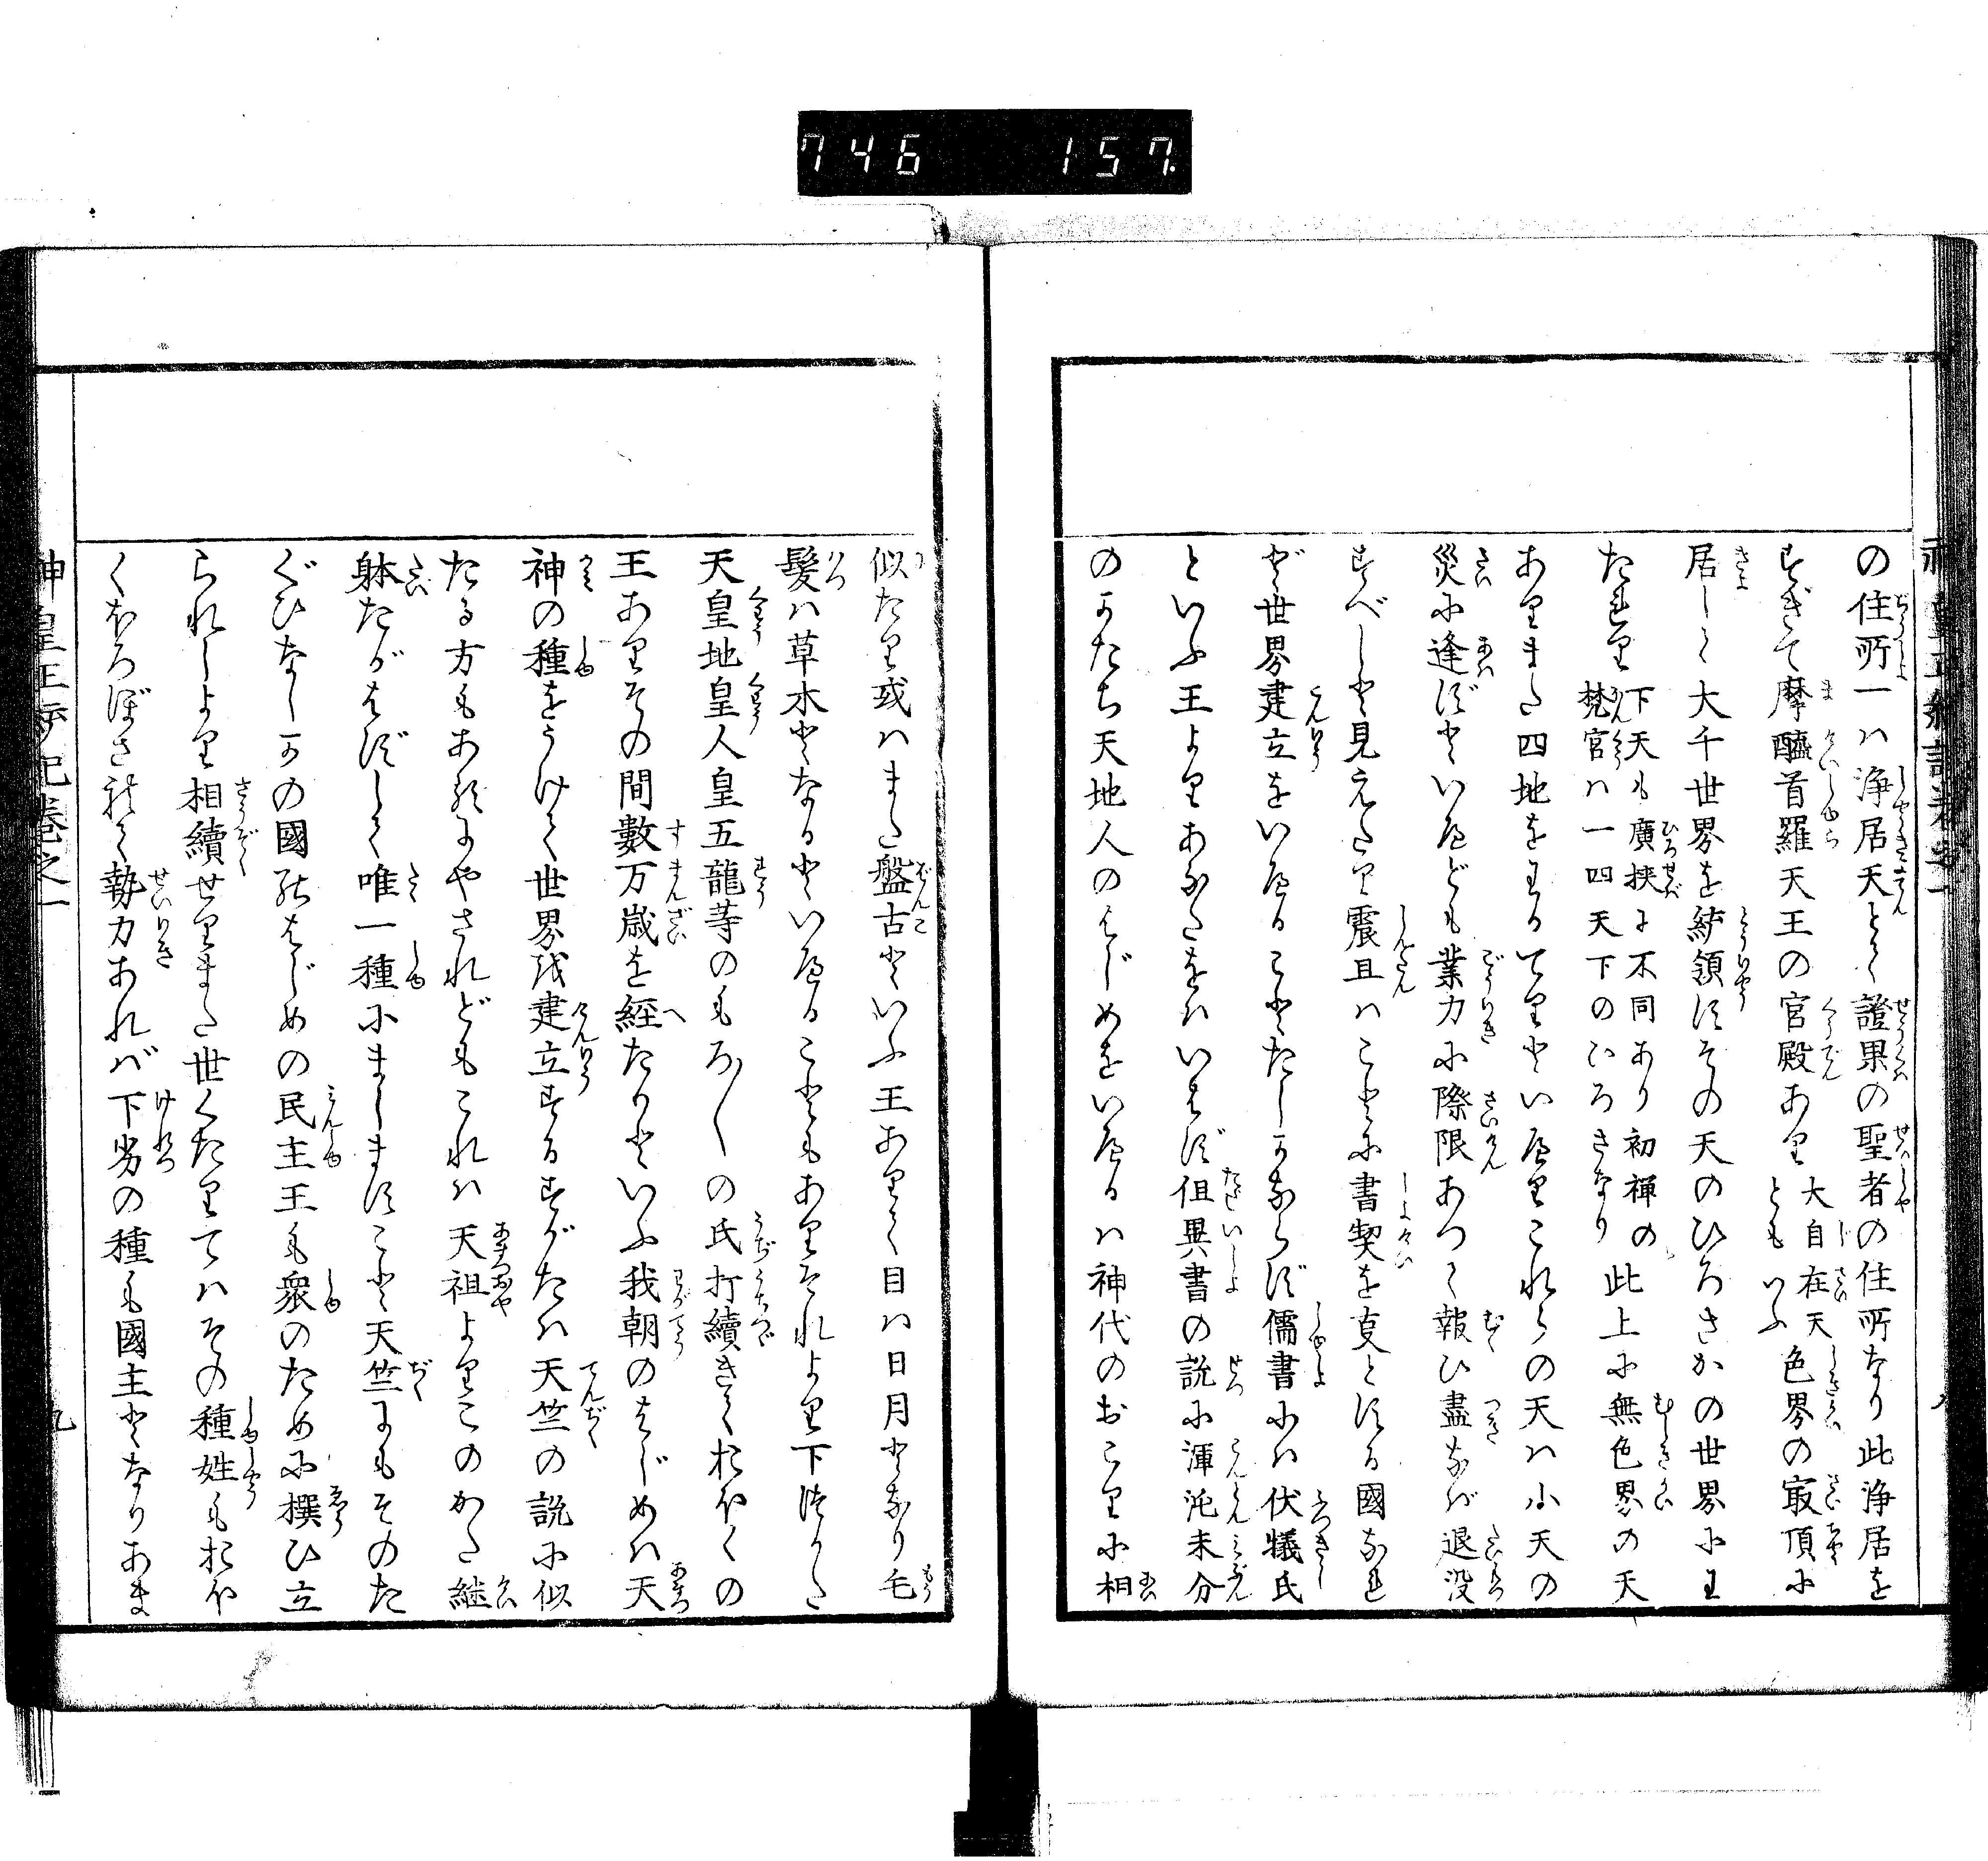 746 157
の住所一ハ浄居天とて證果の聖者の住所なり此浄居を
すぎて摩醯首羅天王の宮殿あり大自在天ともいふ色界の㝡頂に
居して大千世界を統領すその天のひろさかの世界にわ
たれり下天も廣狭に不同あり初禅の梵宮ハ一四天下のひろきなり此上に無色界の天
ありまた四地をわかてりといへりこれらの天ハ小天の
災に逢ずといへども業力に際限あつて報ひ盡なバ退没
すべしと見えたり震旦ハことに書契を事とする國なれ
ど世界建立をいへることたしかならず儒書にハ伏犠氏
といふ王よりあなたをハいはず但異書の説に渾沌未分
のかたち天地人のはじめをいへるハ神代のおこりに相
似たり或ハまた盤古といふ王ありて目ハ日月となり毛
髪ハ草木となるといへることもありそれより下つかた
天皇地皇人皇五龍等のもろ〱の氏打續きておほくの
王ありその間數万歳を経たりといふ我朝のはじめハ天
神の種をうけて世界を建立するすがたハ天竺の説に似
たる方もあるにやされどもこれハ天祖よりこのかた継
躰たがはずして唯一種にましますこと天竺にもそのた
ぐひなしかの國のはじめの民主王も衆のために撰ひ立
られしより相續せりまた世くたりてハその種姓もおほ
くほろぼされて勢力あれバ下劣の種も國主となりあま
神皇正統記巻之一
九